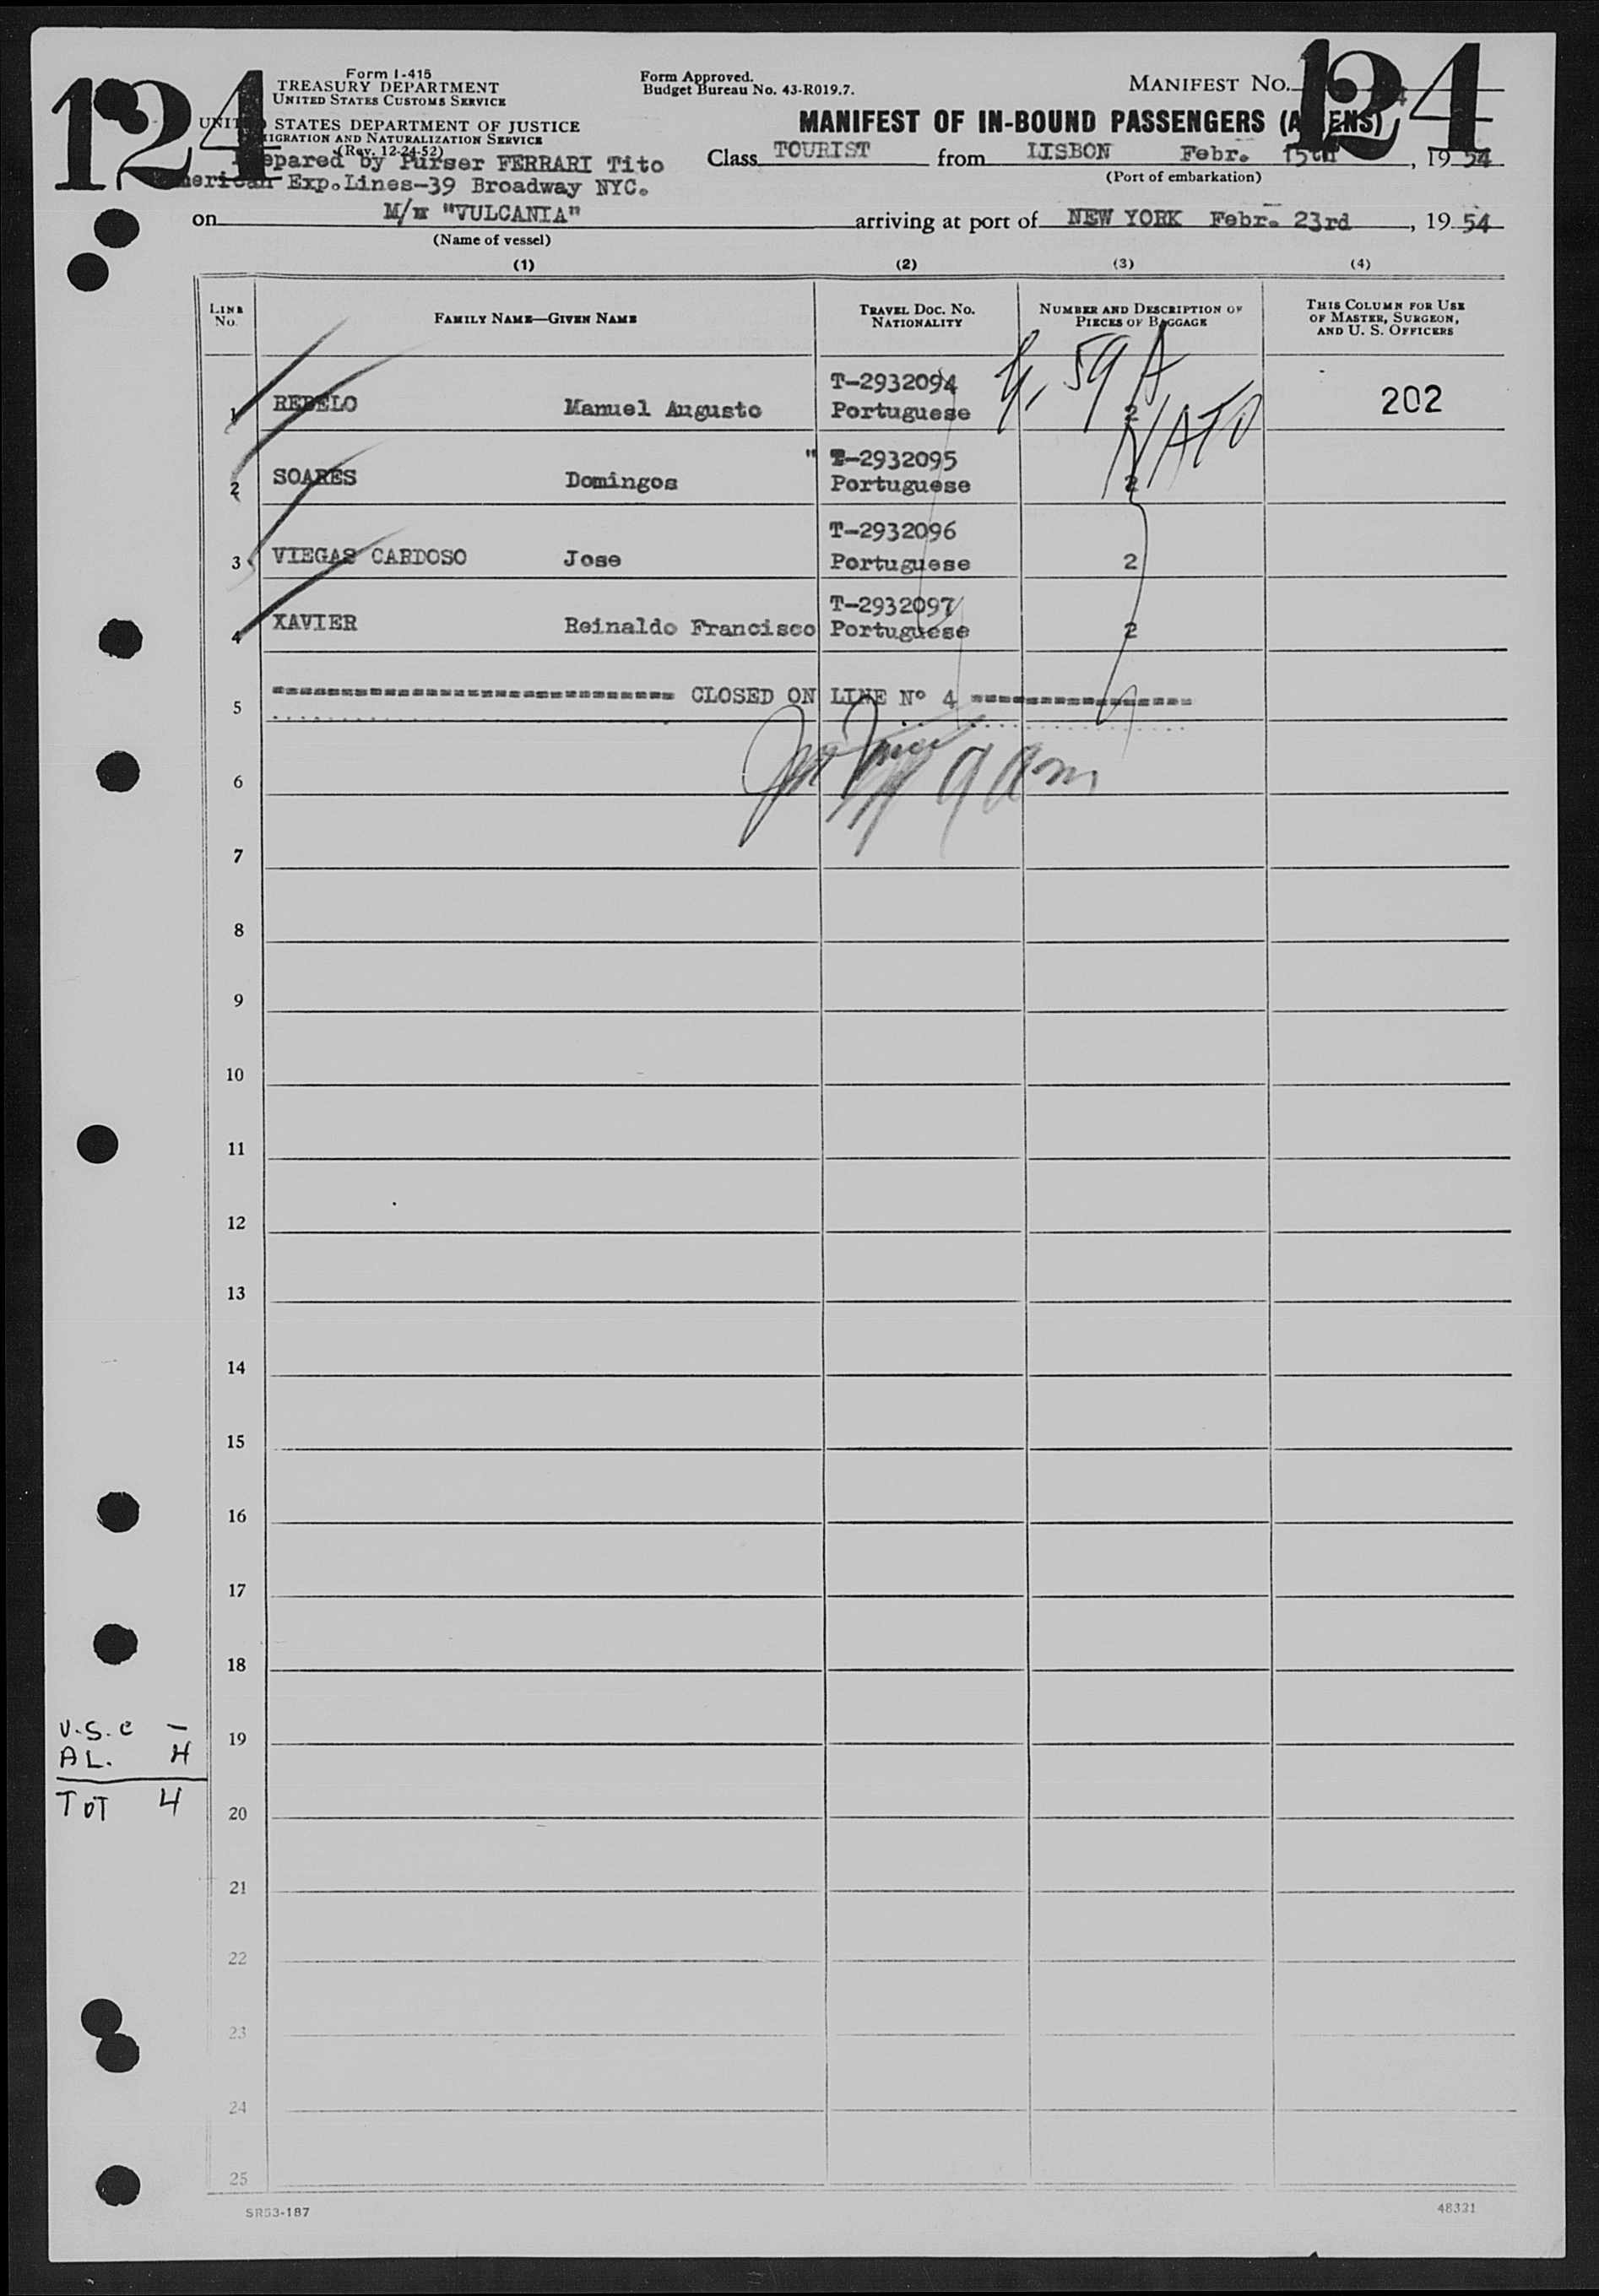 124
124
Form I-415
TREASURY DEPARTMENT
UNITED STATES CUSTOMS SERVICE
STATES DEPARTMENT OF JUSTICE
AND NATURALIZATION SERVICE
(Rev. 12-24-52)
Form Approved.
Budget Bureau No. 43-R019.7.
MANIFEST NO.
MANIFEST OF IN-BOUND PASSENGERS (ALIENS)
epared by Purser FERRARI Tito
merican Exp.Lines-39 Broadway NYC.
Class TOURIST from LISBON Febr. 15th, 1954
(Port of embarkation)
on M/N "VULCANIA" arriving at port of NEW YORK Febr. 23rd, 1954
(Name of vessel)
(1) (2) (3) (4)
LINE No. FAMILY NAME—GIVEN NAME TRAVEL DOC. NO. NATIONALITY NUMBER AND DESCRIPTION OF PIECES OF BAGGAGE THIS COLUMN FOR USE OF MASTER, SURGEON, AND U. S. OFFICERS
T-2932094 59 A
1 REBELO Manuel Augusto Portuguese 2 202
NATO
" T-2932095
2 SOARES Domingos Portuguese 2
T-2932096
3 VIEGAS CARDOSO Jose Portuguese 2
T-2932097
4 XAVIER Reinaldo Francisco Portuguese 2
5 ============================= CLOSED ON LINE Nº 4 ================
6
7
8
9
10
11
12
13
14
15
16
17
18
U.S.C —
19
AL. 4
TOT 4
20
21
22
23
24
25
SR53-187 48321